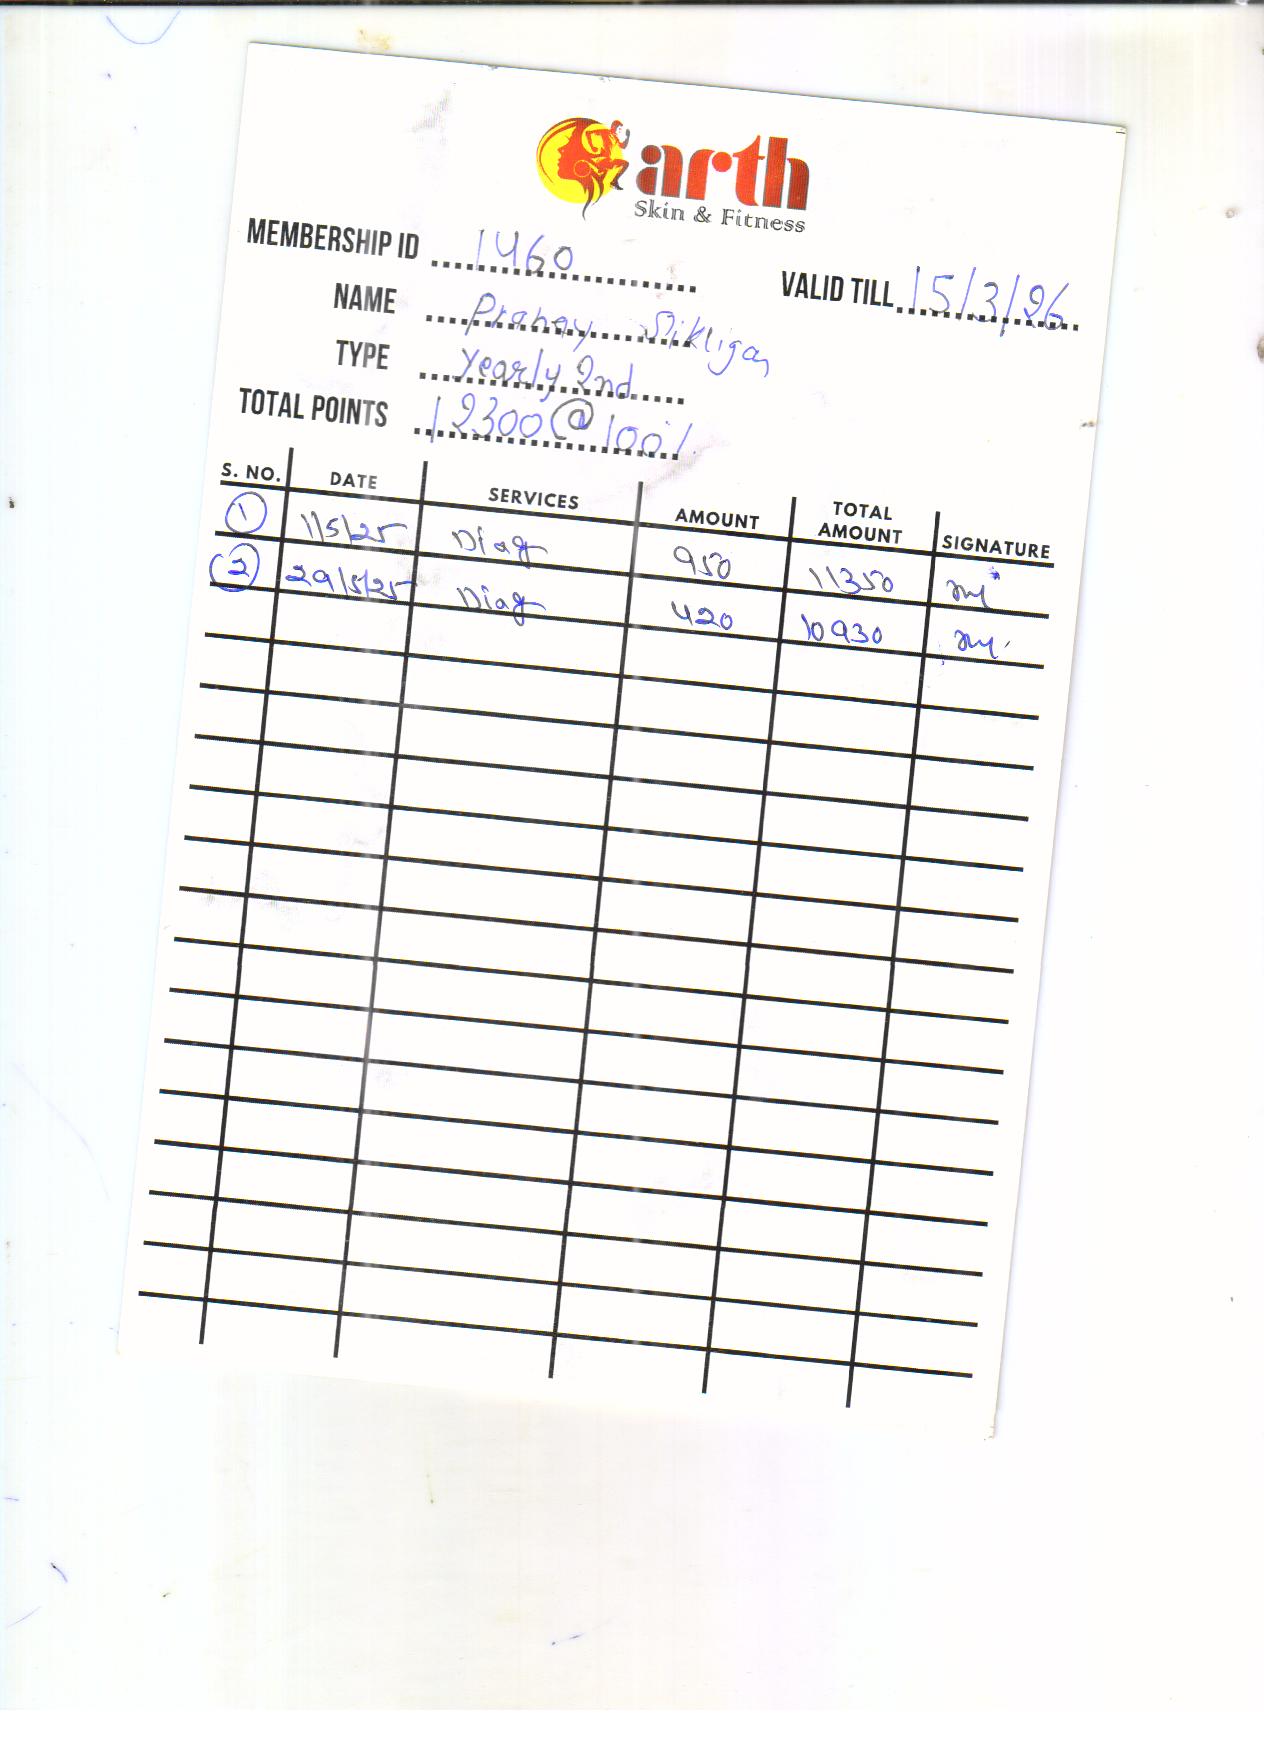 arth
Skin & Fitness
MEMBERSHIP ID 1460
VALID TILL 15/3/26
NAME Pranay Sikligar
TYPE Yearly 2nd
TOTAL POINTS 12300 @ 100%
S. NO. DATE SERVICES AMOUNT TOTAL AMOUNT SIGNATURE
1 1/5/25 Diag 950 11350
2 29/5/25 Diag 420 10930